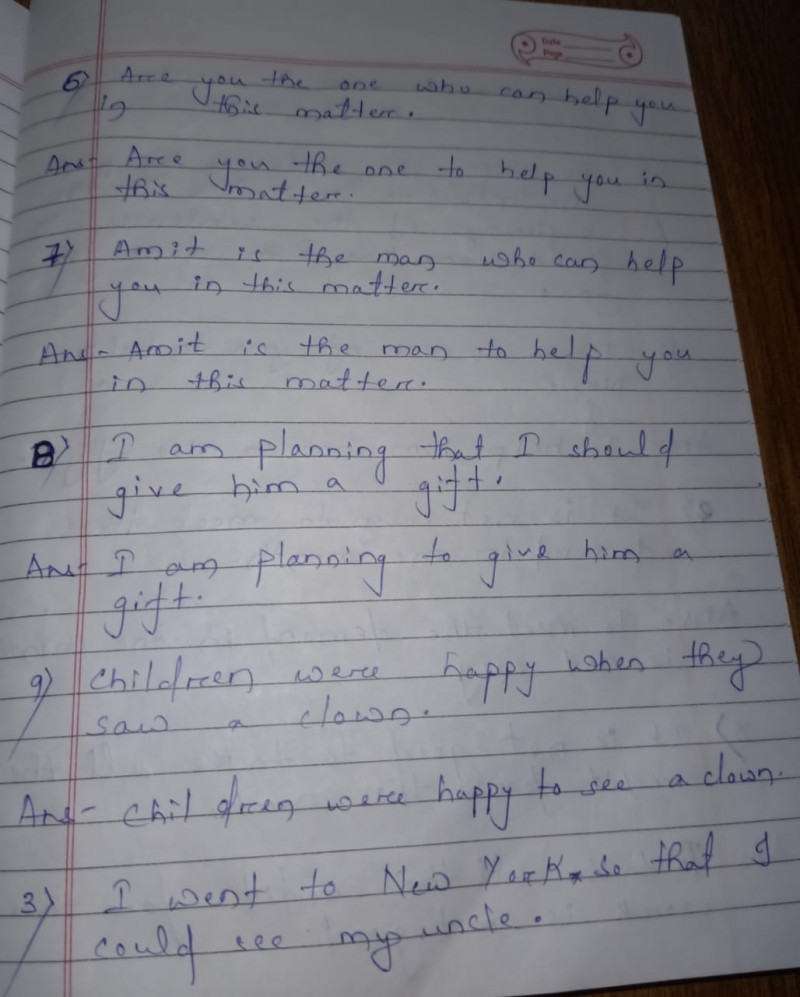 Date
Page
6) Are you the one who can help you
in this matter.
Ans- Are you the one to help you in
this matter.
7) Amit is the man who can help
you in this matter.
Ans- Amit is the man to help you
in this matter.
8) I am planning that I should
give him a gift.
Ans- I am planning to give him a
gift.
9) Children were happy when they
saw a clown.
Ans- Children were happy to see a clown.
3) I went to New York so that I
could see my uncle.